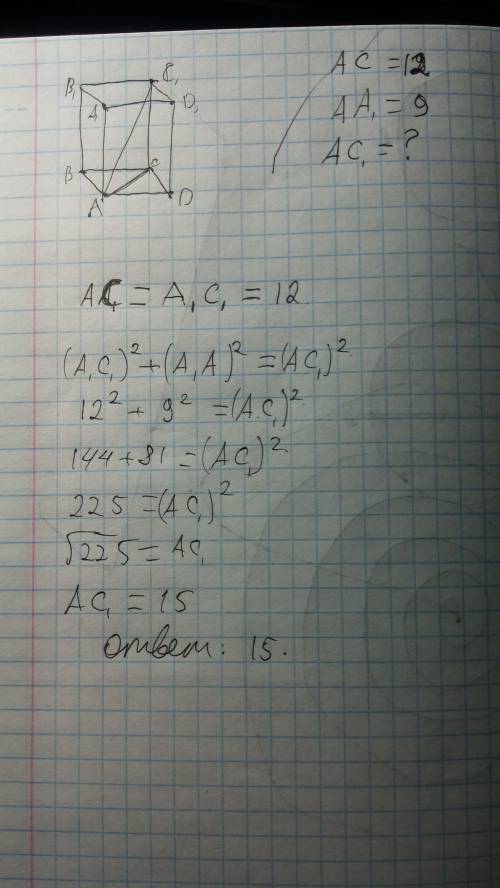 B₁ C₁
A₁ D₁
B C
A D
AC = 12
AA₁ = 9
AC₁ = ?
AC = A₁C₁ = 12
(A₁C₁)² + (A₁A)² = (AC₁)²
12² + 9² = (AC₁)²
144 + 81 = (AC₁)²
225 = (AC₁)²
√225 = AC₁
AC₁ = 15
Ответ: 15.